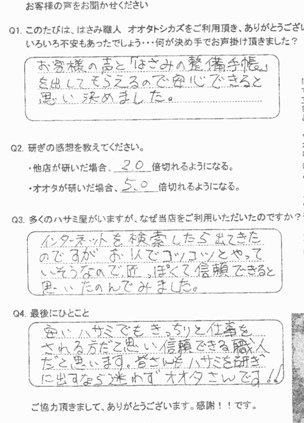 お客様の声をお聞かせください
Q1. このたびは、はさみ職人 オオタトシカズをご利用頂き、ありがとうござい
いろいろ不安もあったでしょう・・・何が決め手でお声掛け頂きました?
お客様の声と「はさみの整備手帳」
を出してもらえるので安心できると
思い決めました。
Q2. 研ぎの感想を教えてください。
・他店が研いだ場合、 20 倍切れるようになる。
・オオタが研いだ場合、 50 倍切れるようになる。
Q3. 多くのハサミ屋がいますが、なぜ当店をご利用いただいたのですか?
インターネットを検索したら出てきた
のですが お1人でコツコツとやって
いそうなので匠っぽくて信頼できると
思いたのんでみました。
Q4. 最後にひとこと
安いハサミでも きっちりと仕事を
される方だと思い信頼できる職人
だと思います。皆さんもハサミを研ぎ
に出すなら迷わず オオタさんです!!
ご協力頂きまして、ありがとうございます。感謝!!です。